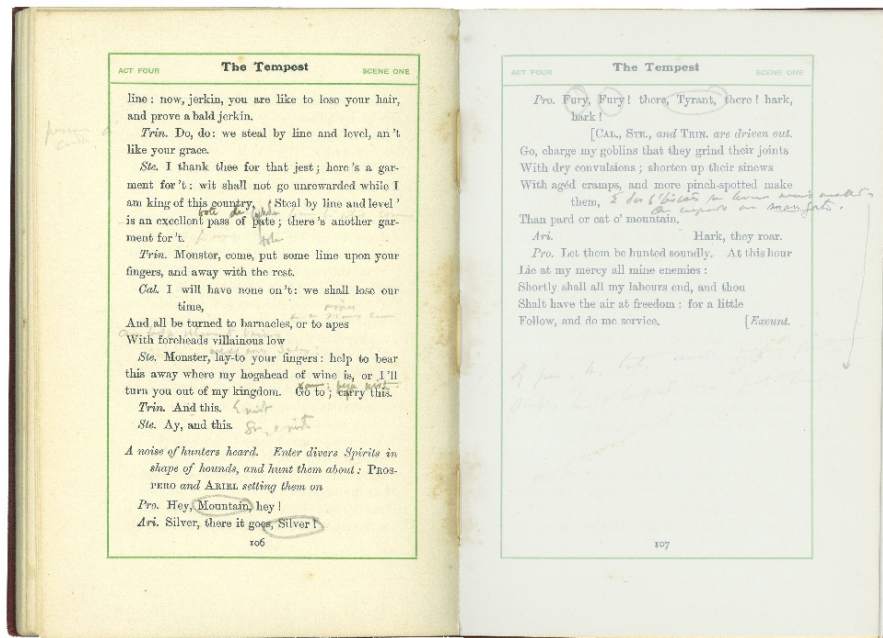 ACT FOUR The Tempest SCENE ONE
line: now, jerkin, you are like to lose your hair,
and prove a bald jerkin.
Trin. Do, do: we steal by line and level, an 't
like your grace.
Ste. I thank thee for that jest; here 's a gar-
ment for 't: wit shall not go unrewarded while I
am king of this country. 'Steal by line and level'
is an excellent pass of pate; there 's another gar-
ment for 't.
Trin. Monster, come, put some lime upon your
fingers, and away with the rest.
Cal. I will have none on 't: we shall lose our
time,
And all be turned to barnacles, or to apes
With foreheads villainous low
Ste. Monster, lay-to your fingers: help to bear
this away where my hogshead of wine is, or I 'll
turn you out of my kingdom. Go to; carry this.
Trin. And this.
Ste. Ay, and this.
A noise of hunters heard. Enter divers Spirits in
shape of hounds, and hunt them about: PROS-
PERO and ARIEL setting them on
Pro. Hey, Mountain, hey!
Ari. Silver, there it goes, Silver!
106
ACT FOUR The Tempest SCENE ONE
Pro. Fury, Fury! there, Tyrant, there! hark,
hark!
[CAL., STE., and TRIN. are driven out.
Go, charge my goblins that they grind their joints
With dry convulsions; shorten up their sinews
With agéd cramps, and more pinch-spotted make
them,
Than pard or cat o' mountain.
Ari. Hark, they roar.
Pro. Let them be hunted soundly. At this hour
Lie at my mercy all mine enemies:
Shortly shall all my labours end, and thou
Shalt have the air at freedom: for a little
Follow, and do me service. [Exeunt.
107